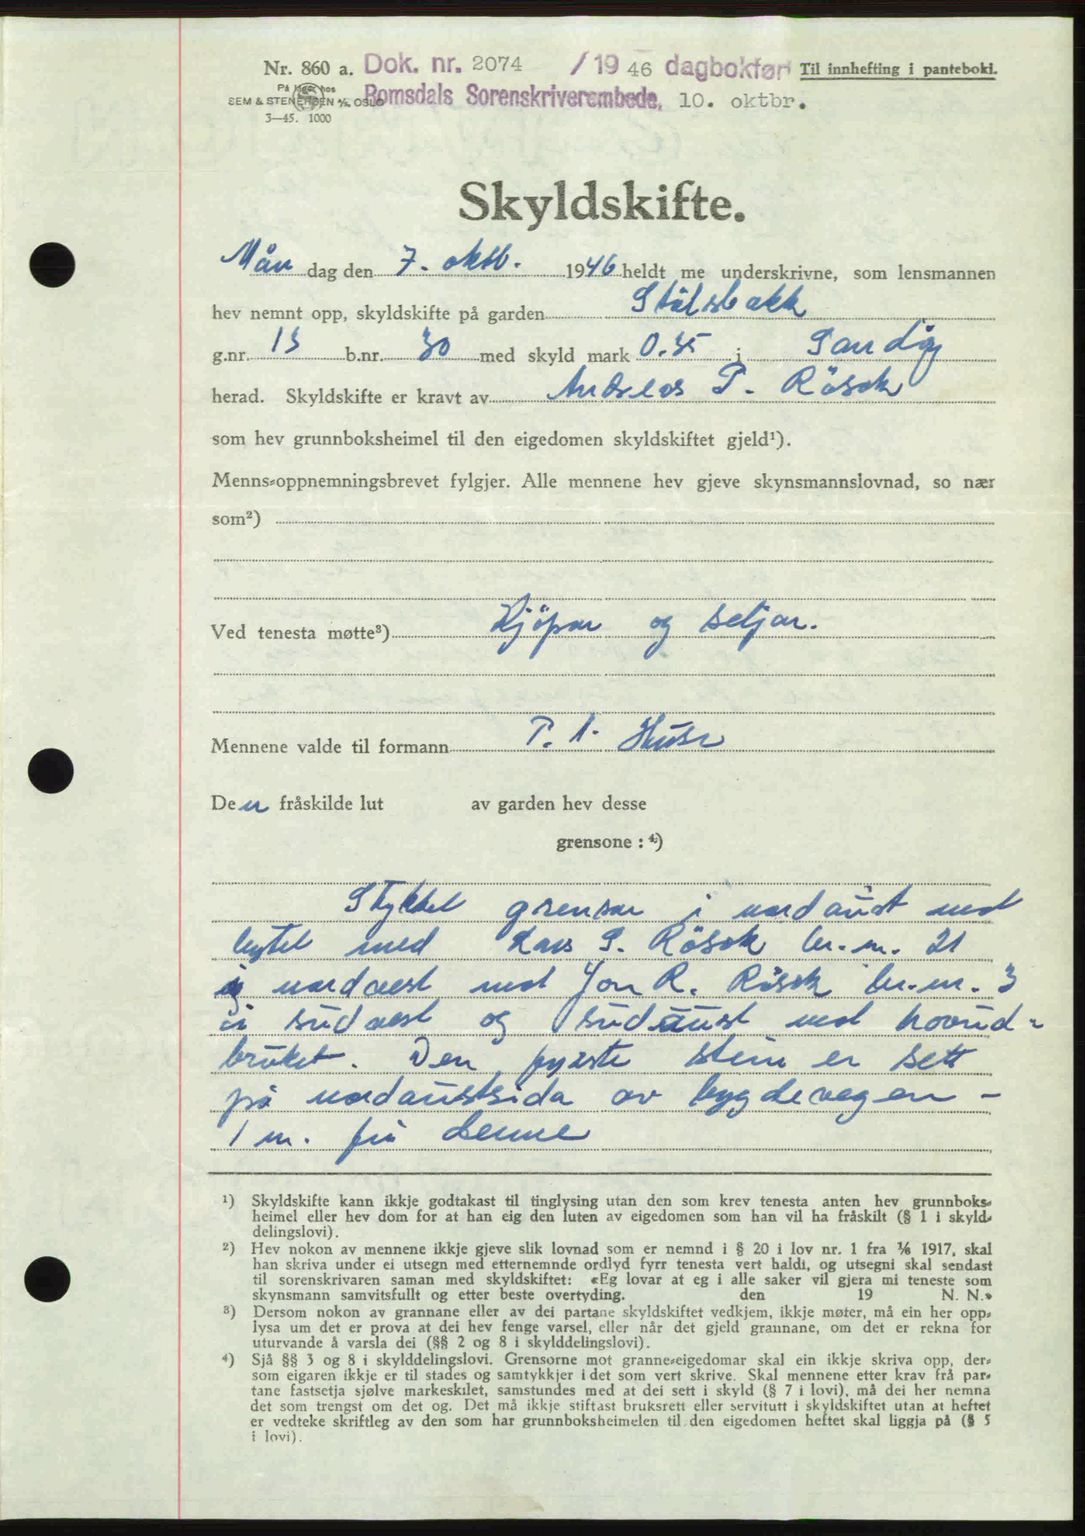 Nr. 860 a. Dok. nr. 2074 / 1946 dagbokført Til innhefting i panteboki.
På lager hos
SEM & STENERSEN A/S, OSLO Romsdals Sorenskriverembede, 10. oktbr.
3—45. 1000
Skyldskifte.
Mån dag den 7. oktb. 1946 heldt me underskrivne, som lensmannen
hev nemnt opp, skyldskifte på garden Stålsbakk
g.nr. 13 b.nr. 30 med skyld mark 0.35 i Sandöy
herad. Skyldskifte er kravt av Andreas P. Rösok
som hev grunnboksheimel til den eigedomen skyldskiftet gjeld¹).
Menns-oppnemningsbrevet fylgjer. Alle mennene hev gjeve skynsmannslovnad, so nær
som²)
Ved tenesta møtte³) Kjöpar og seljar.
Mennene valde til formann P. A. Huse
Den fråskilde lut av garden hev desse
grensone : ⁴)
Stykket grensar i nordaust med
bytet med Lars S. Rösok br. nr. 21
i nordvest med Jon R. Rösok br. nr. 3
i südvest og südaust med hovud-
bruket. Den fyrste stein er sett
på nordaustsida av bygdevegen –
1 m. frå denne
¹) Skyldskifte kann ikkje godtakast til tinglysing utan den som krev tenesta anten hev grunnboks-
heimel eller hev dom for at han eig den luten av eigedomen som han vil ha fråskilt (§ 1 i skyld-
delingslovi).
²) Hev nokon av mennene ikkje gjeve slik lovnad som er nemnd i § 20 i lov nr. 1 fra ¹⁄₆ 1917, skal
han skriva under ei utsegn med etternemnde ordlyd fyrr tenesta vert haldi, og utsegni skal sendast
til sorenskrivaren saman med skyldskiftet: «Eg lovar at eg i alle saker vil gjera mi teneste som
skynsmann samvitsfullt og etter beste overtyding. den 19 N. N.»
³) Dersom nokon av grannane eller av dei partane skyldskiftet vedkjem, ikkje møter, må ein her opp-
lysa um det er prova at dei hev fenge varsel, eller når det gjeld grannane, om det er rekna for
uturvande å varsla dei (§§ 2 og 8 i skylddelingslovi).
⁴) Sjå §§ 3 og 8 i skylddelingslovi. Grensorne mot granne-eigedomar skal ein ikkje skriva opp, der-
som eigaren ikkje er til stades og samtykkjer i det som vert skrive. Skal mennene etter krav frå par-
tane fastsetja sjølve markeskilet, samstundes med at dei sett i skyld (§ 7 i lovi), må dei her nemna
det som trengst om det og. Det må ikkje stiftast bruksrett eller servitutt i skyldskiftet utan at heftet
er vedteke skriftleg av den som har grunnboksheimelen til den eigedomen heftet skal liggja på (§ 5
i lovi).